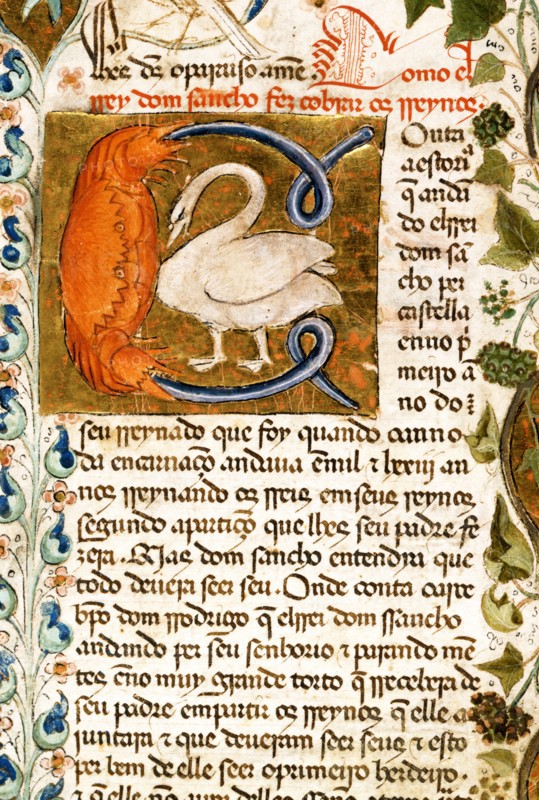 lhes de oparaiso amẽ. Como el
rrey dom sancho fez cobrar os rreynos.
Conta
aestoria
q̃ andã
do elrrei
dom sã
cho per
castella
enno p̃
meiro ã
no do
seu rreynado que foy quando oanno
da encarnaçõ andaua ẽmil ⁊ lxxiii an
nos rreynando os rreis em seus reynos
segundo apartiçõ que lhes seu padre fe
zera. Mas dom sancho entendya que
todo deuera seer seu. Onde conta oarce
bp̃o dom rrodrigo q̃ elrrei dom ssancho
andando per seu senhorio ⁊ parando mẽ
tes ẽno muy grande torto q̃ rrecebera de
seu padre empartir os rreynos q̃ elle
juntara ⁊ que deueram seer seus ⁊ esto
per bem de elle seer oprimeiro herdeiro.
⁊ q̃ elle